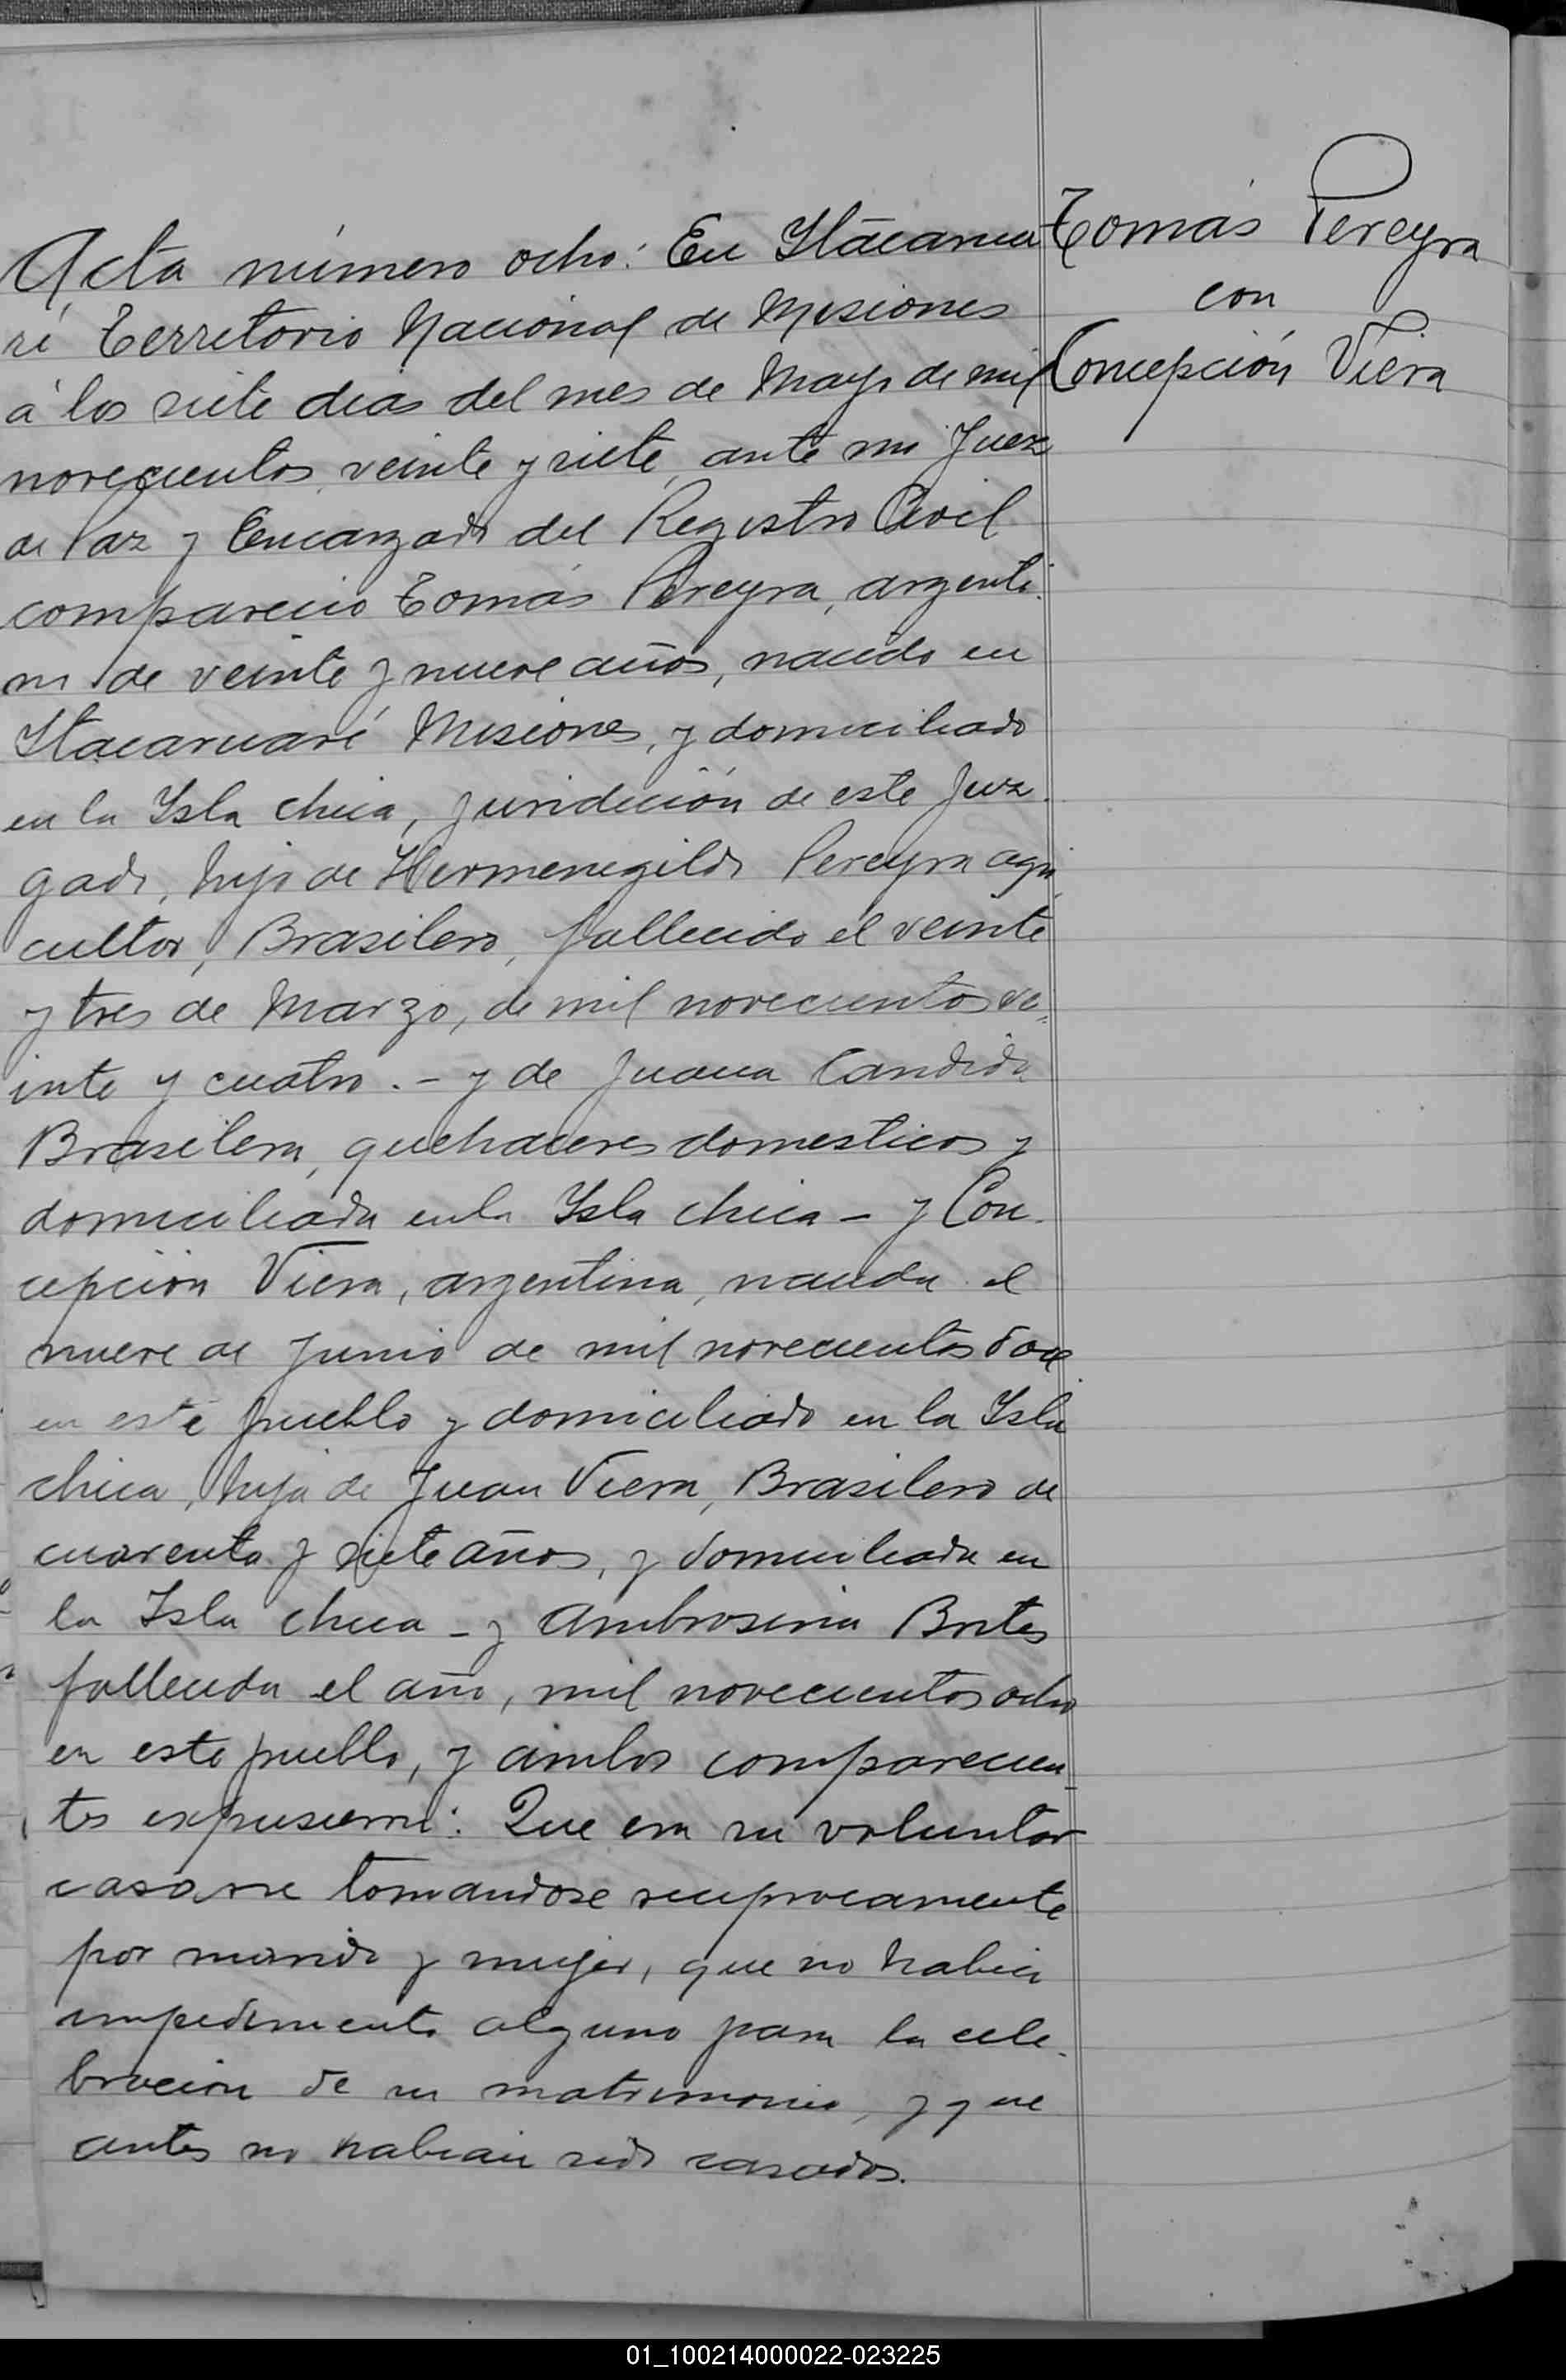 Tomás Pereyra
con
Concepción Viera
Acta número ocho: En Itacarua
ré Territorio Nacional de Misiones
á los siete dias del mes de Mayo de mil
novecientos veinte y siete, ante mi Juez
de Paz y Encargado del Registro Civil
comparecio Tomás Pereyra, argenti-
no de veinte y nueve años, nacido en
Itacaruaré Misiones, y domiciliado
en la Isla chica, juridición de este Juz-
gado, hijo de Hermenegildo Pereyra agri
cultor, Brasilero, fallecido el veinte
y tres de Marzo, de mil novecientos ve-
inte y cuatro. - y de Juana Candida
Brasilera, quehaceres domesticos y
domiciliada en la Isla chica - y Con-
cepción Viera, argentina, nacida el
nueve de Junio de mil novecientos doce
en este pueblo y domiciliado en la Isla
chica, hija de Juan Viera, Brasilero de
cuarenta y siete años, y domiciliada en
la Isla chica - y Ambrosina Brites
fallecida el año, mil novecientos ocho
en este pueblo, y ambos comparecien-
tes expusieron: Que era su voluntar
casarse tomandose reciprocamente
por marido y mujer, que no habia
impedimento alguno para la cele-
bración de su matrimonio, y que
antes no habian sido casados.
01_100214000022-023225